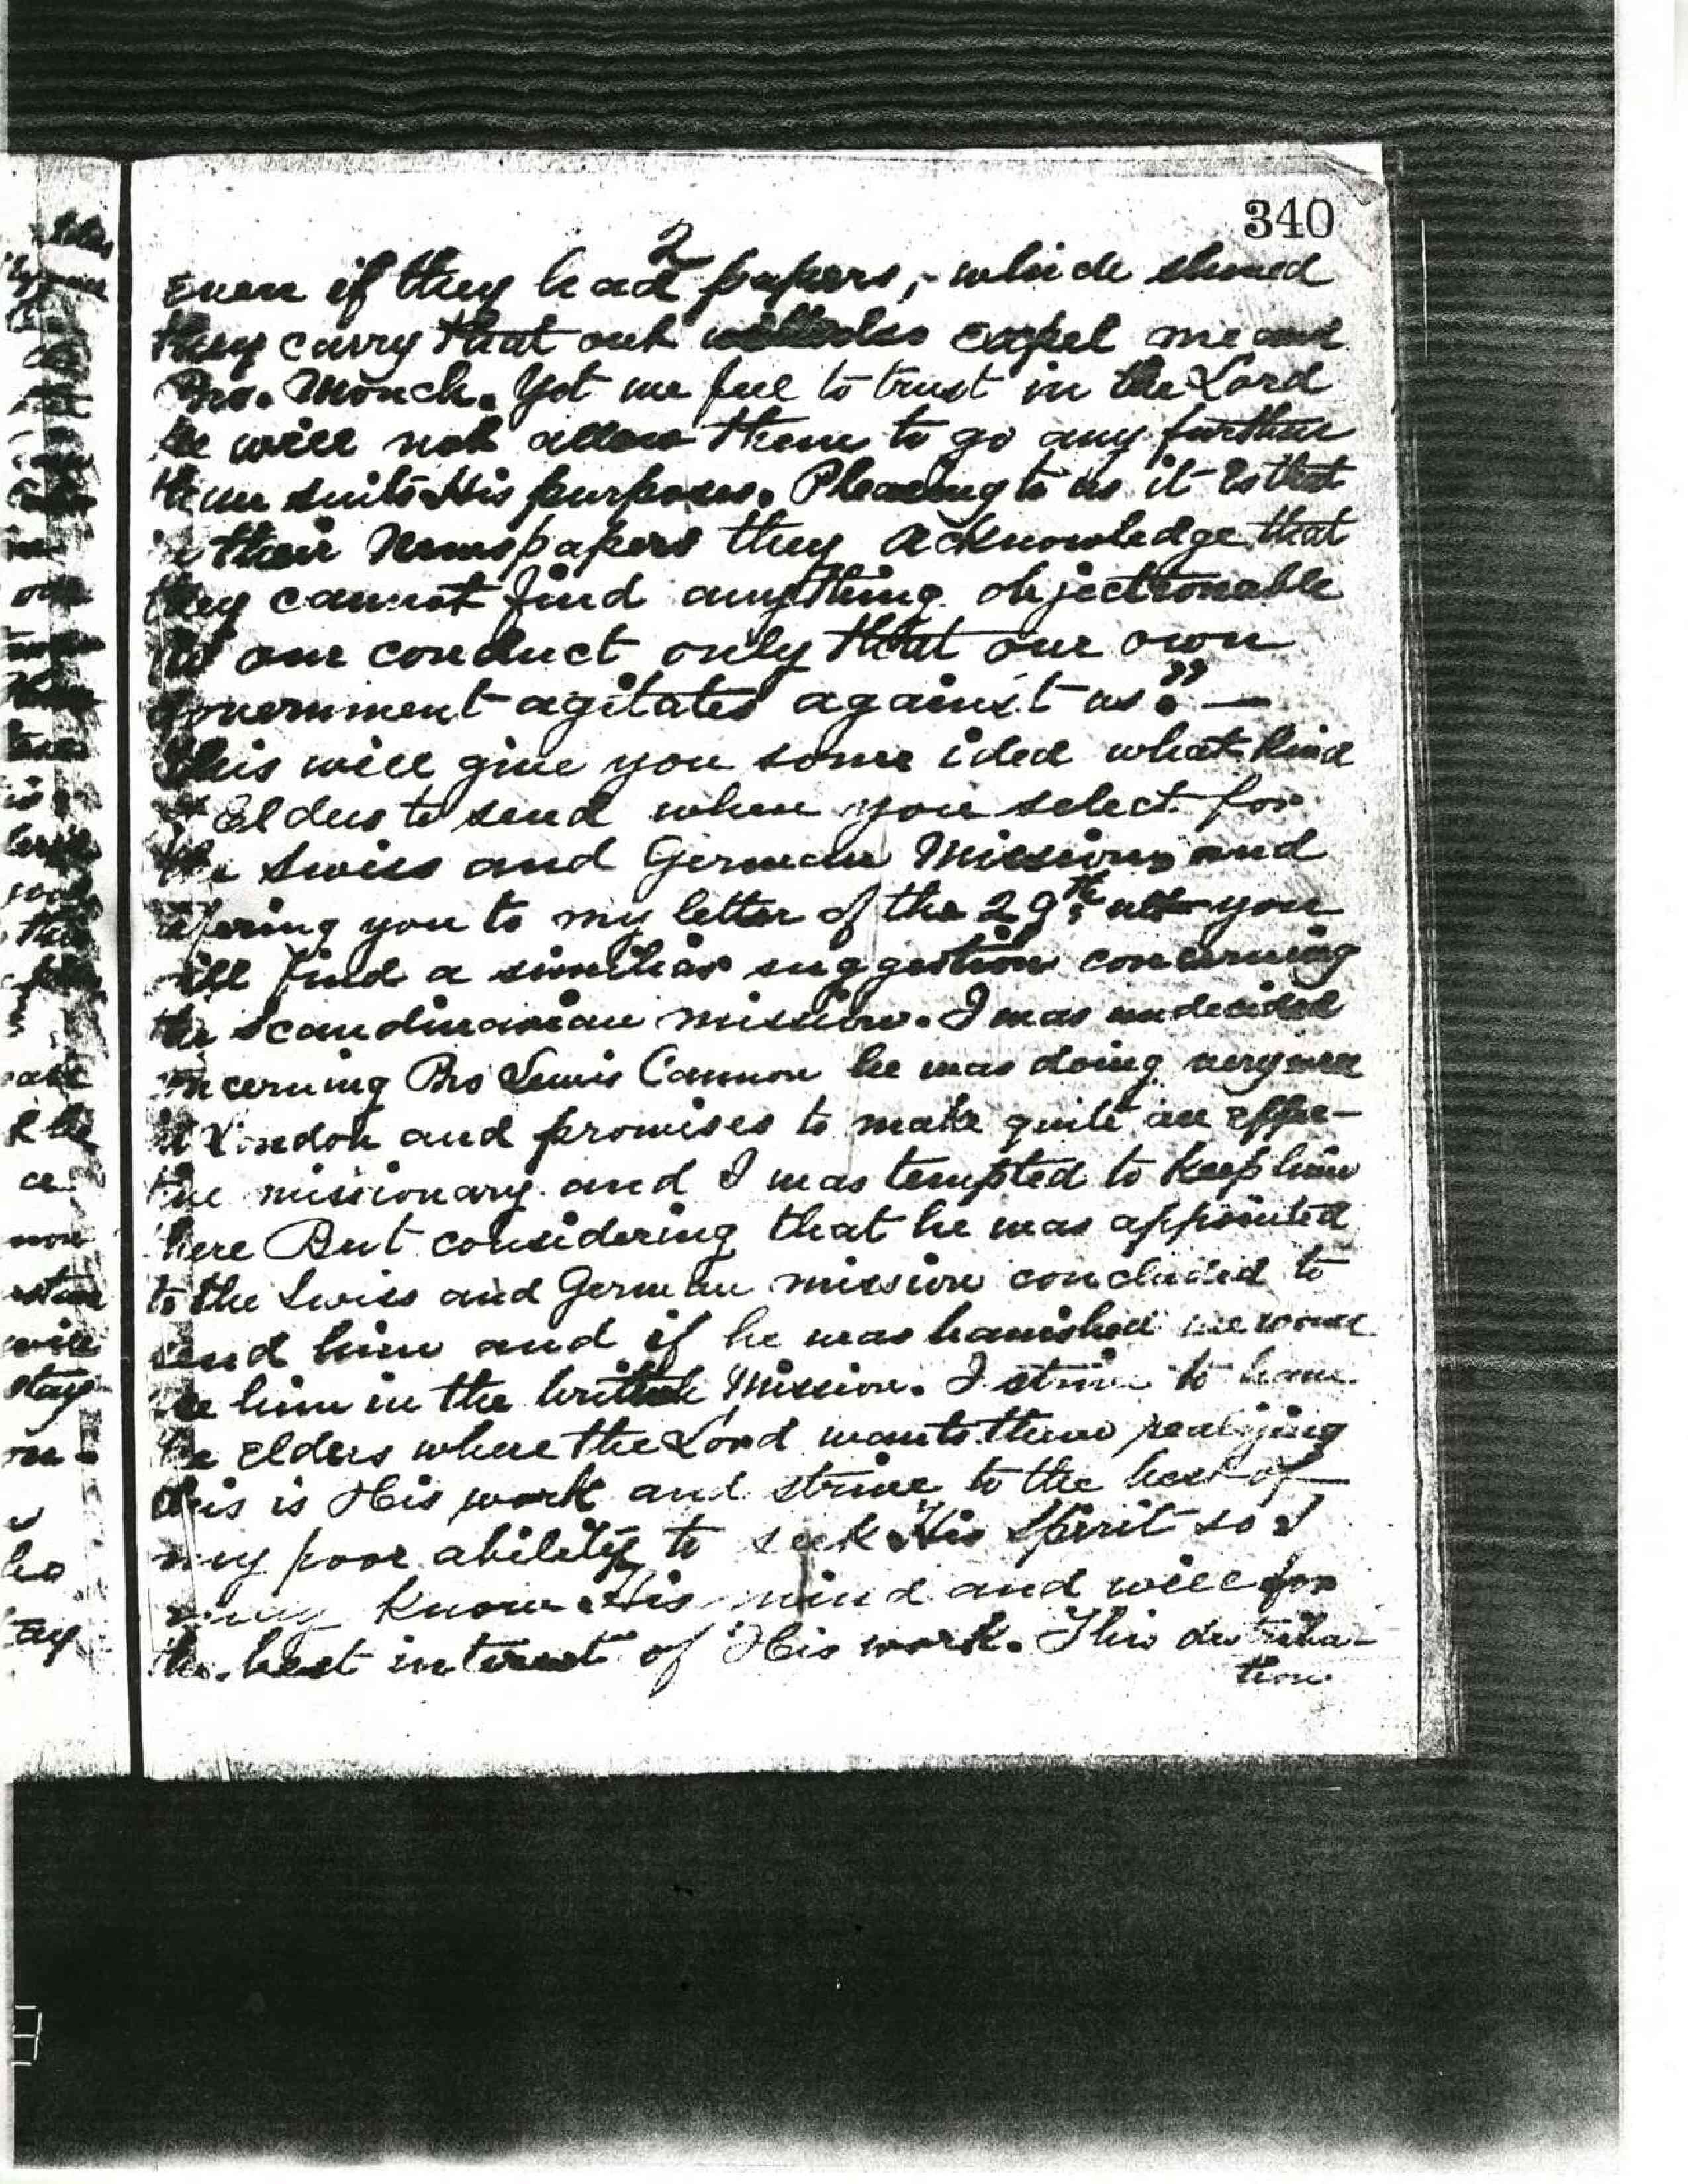 340
2
Even if they had papers, which should
they carry that out would also expel me and
Bro. Monch. Yet we feel to trust in the Lord
he will not allow them to go any further
than suits His purposes. Pleasing to us it is that
in their Newspapers they acknowledge that
they cannot find anything objectionable
to our conduct only that our own
government agitates against us." —
This will give you some idea what kind
of Elders to send when you select for
the Swiss and German Mission, and
refering you to my letter of the 29th ult you
will find a similiar suggestion concerning
the Scandinavian mission. I was undecided
concerning Bro Lewis Cannon he was doing very well
in London and promises to make quite an effec-
tive missionary and I was tempted to keep him
here But considering that he was appointed
to the Swiss and German mission concluded to
send him and if he was banished we would
use him in the British Mission. I strive to have
the elders where the Lord wants them realizing
this is His work and strive to the best of
my poor ability to seek His Spirit so I
may know His mind and will for
the best interest of His work. This distribu-
tion